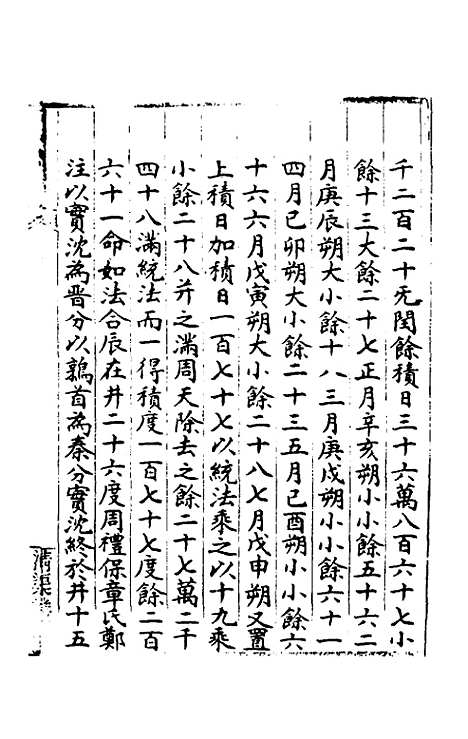 千二百二十无閏餘積日三十六萬八百六十七小
餘十三大餘二十七正月辛亥朔小小餘五十六二
月庚辰朔大小餘十八三月庚戌朔小小餘六十一
四月己卯朔大小餘二十三五月己酉朔小小餘六
十六六月戊寅朔大小餘二十八七月戊申朔又置
上積日加積日一百七十七以統法乘之以十九乘
小餘二十八并之滿周天除去之餘二十七萬二千
四十八滿統法而一得積度一百七十七度餘二百
六十一命如法合辰在井二十六度周禮保章氏鄭
注以實沈為晋分以鶉首為秦分實沈終於井十五